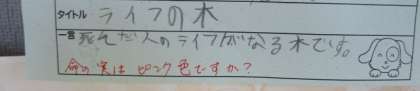 タイトル ライフの木
一言 死んだ人のライフがなる木です。
命の実はピンク色ですか?